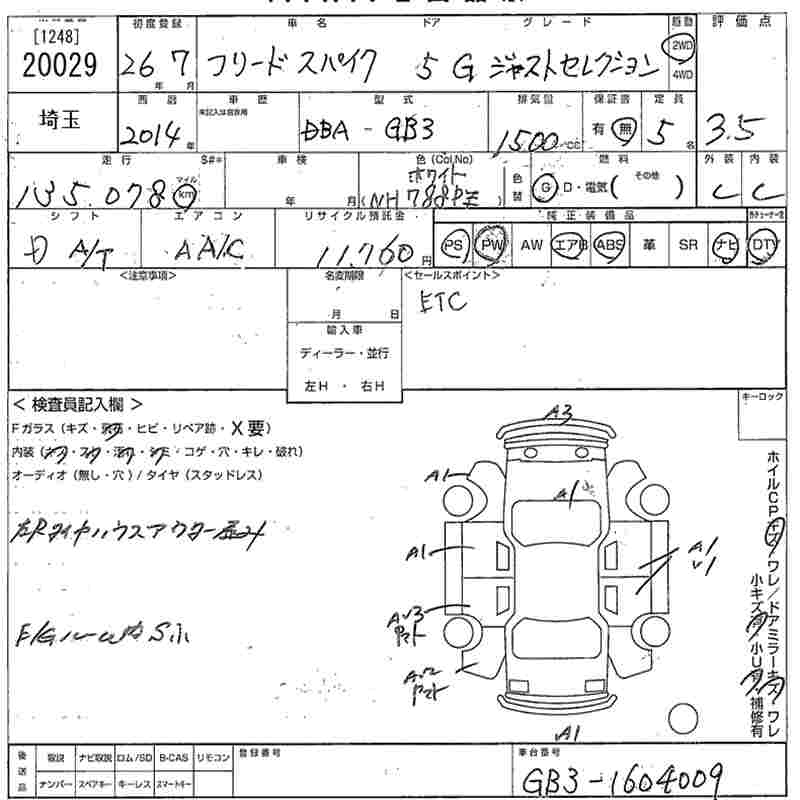 [1248]
20029
初度登録
26 年 7 月
車名 ドア グレード
フリードスパイク 5 G ジャストセレクション
駆動
2WD
4WD
評価点
3.5
埼玉
西暦
2014年
車歴
未記入は自家用
型式
DBA - GB3
排気量
1500 CC
保証書
有 無
定員
5名
走行 S#*
135,078 マイル km
車検
年 月
色 (Col,No)
ホワイト
(NH788PE)
色替
燃料
G・D・電気 (その他 )
外装 内装
C C
シフト
D A/T
エアコン
A A/C
リサイクル預託金
11,760円
純正装備品
PS PW AW エアB ABS 革 SR ナビ DTV
<注意事項>
名変期限
月 日
輸入車
ディーラー・並行
左H ・ 右H
<セールスポイント>
ETC
キーロック
<検査員記入欄>
Fガラス (キズ・飛石・ヒビ・リペア跡・X要)
内装 (コゲ・穴・キレ・破れ)
オーディオ (無し・穴) / タイヤ (スタッドレス)
左Rタイヤハウスアウター歪み
E/Gルーム内 Sふ
A3
A1
A1
A1
A1
U1
AU3
A1
ホイルCPキズ/ワレ/ドアミラーキズ/ワレ
補修有
後送品
取説 ナビ取説 ロム/SD B-CAS リモコン
ナンバー スペアキー キーレス スマートキー
登録番号
車台番号
GB3-1604009